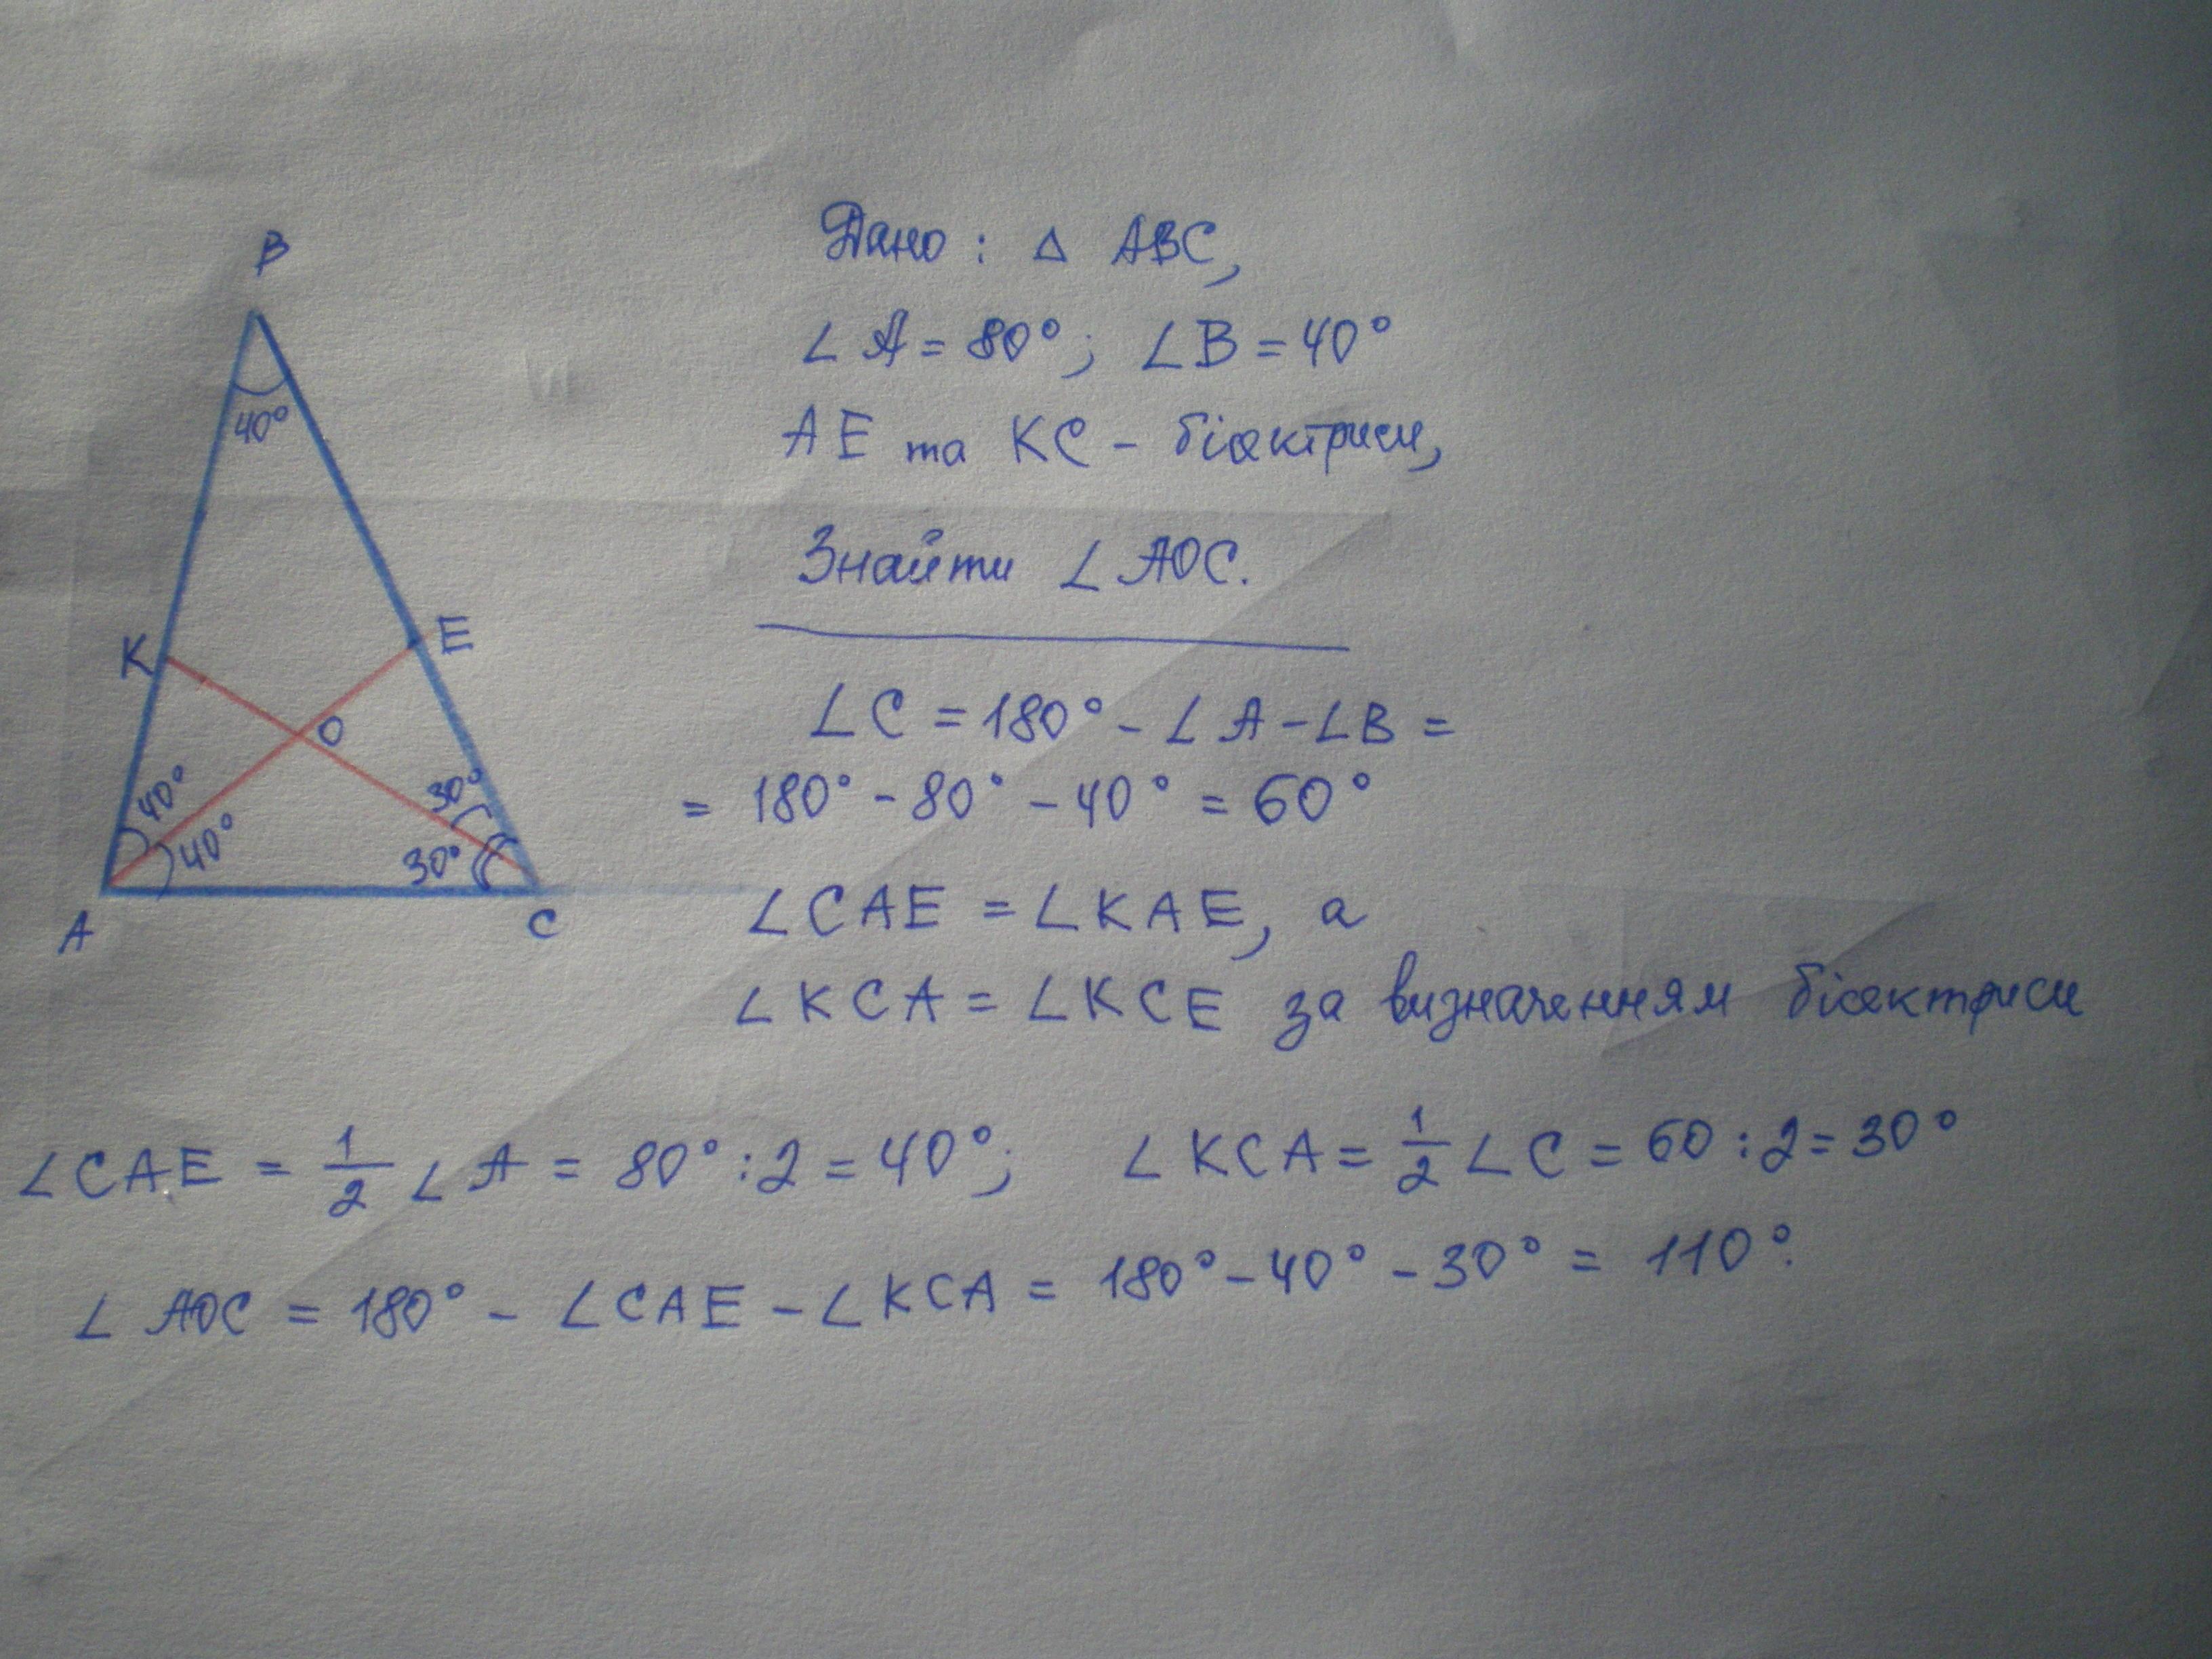 B
40°
K
E
O
40°
40°
30°
30°
A
C
Дано: △ ABC,
∠A = 80°; ∠B = 40°
AE та KC - бісектриси,
Знайти ∠AOC.
∠C = 180° - ∠A - ∠B =
= 180° - 80° - 40° = 60°
∠CAE = ∠KAE, а
∠KCA = ∠KCE за визначенням бісектриси
∠CAE = 1/2 ∠A = 80° : 2 = 40°; ∠KCA = 1/2 ∠C = 60 : 2 = 30°
∠AOC = 180° - ∠CAE - ∠KCA = 180° - 40° - 30° = 110°.